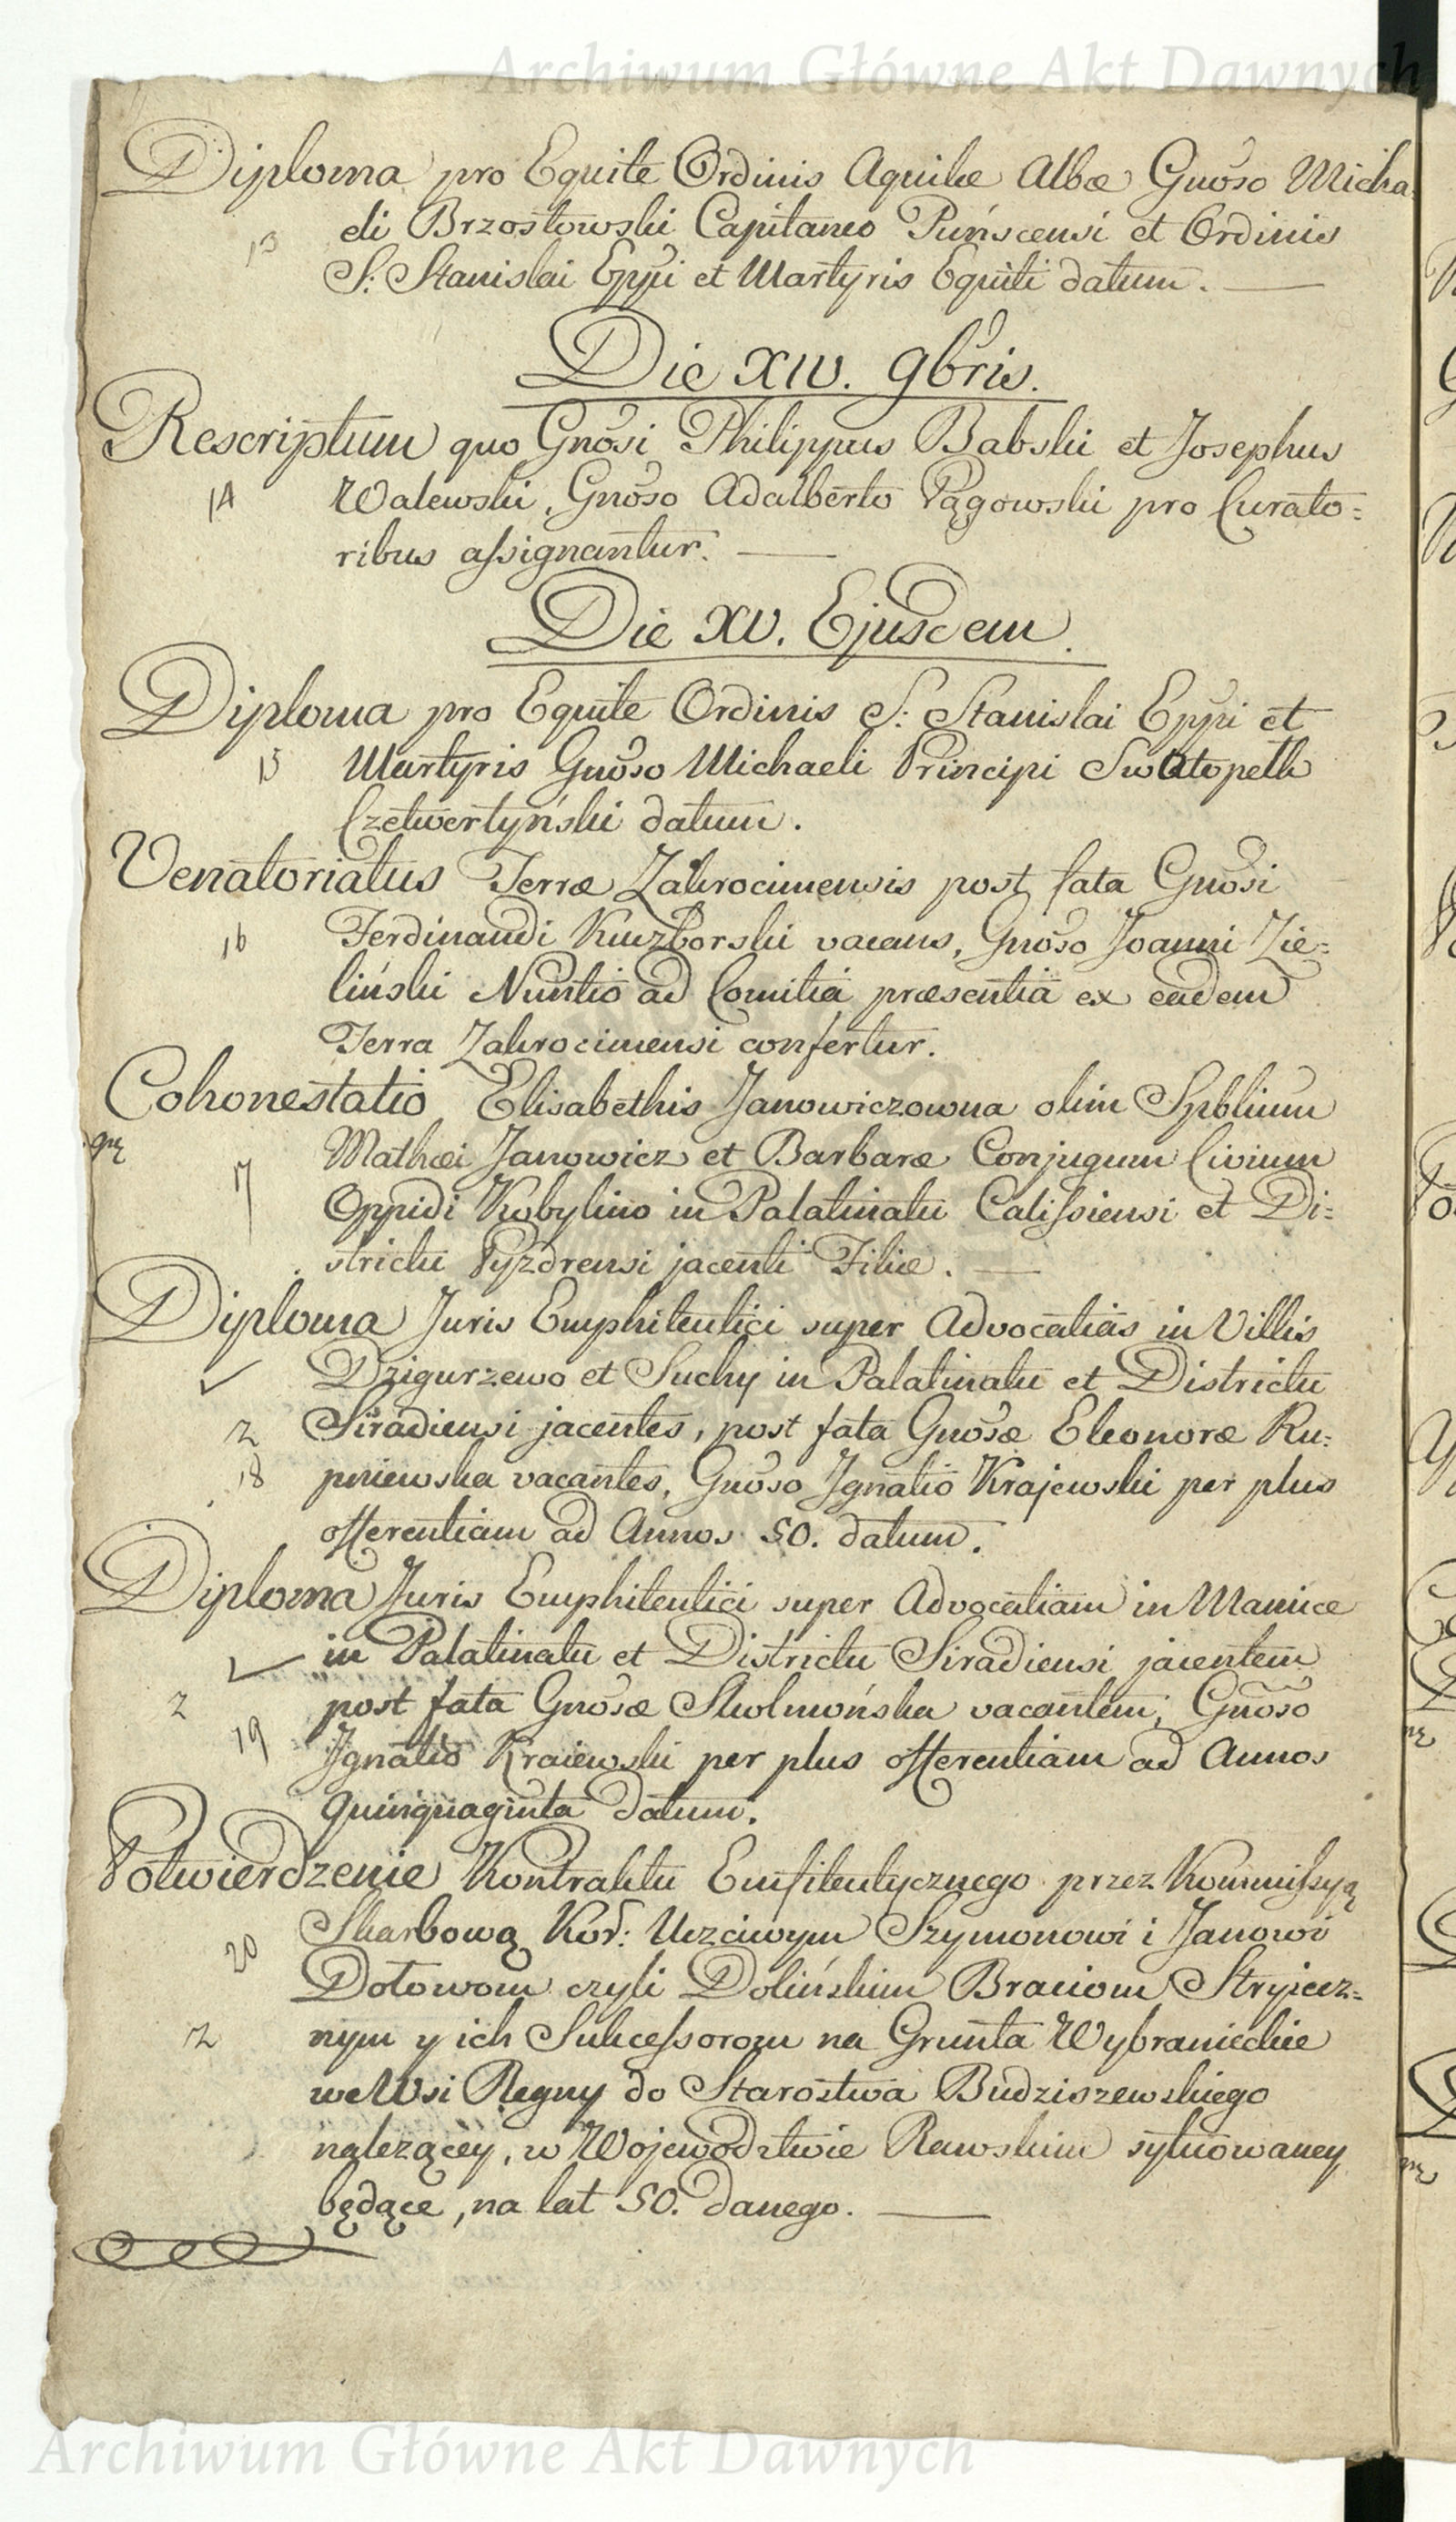 Archiwum Główne Akt Dawnych
Diploma pro Equite Ordinis Aquilæ Albæ Gnoso Micha
13 eli Brzostowski Capitaneo Puńscensi et Ordinis
S: Stanislai Eppi et Martyris Equiti datum.
Die XIV. 9bris.
Rescriptum quo Gnosi Philippus Babski et Josephus
14 Walewski, Gnoso Adalberto Pągowski pro Curato=
ribus assignantur.
Die XV. Ejusdem.
Diploma pro Equite Ordinis S: Stanislai Eppi et
15 Martyris Gnoso Michaeli Principi Swatopelk
Czetwertyński datum.
Venatoriatus Terræ Zakrocimensis post fata Gnosi
16 Ferdinandi Kuczborski vacans, Gnoso Joanni Zie=
liński Nuntio ad Comitia præsentia ex eadem
Terra Zakrocimensi confertur.
Cohonestatio Elisabethis Janowiczowna olim Spblium
17 Mathæi Janowicz et Barbaræ Conjugum Civium
Oppidi Kobylino in Palatinatu Calissiensi et Di=
strictu Pyzdrensi jacenti Filiæ.
Diploma Juris Emphiteutici super Advocatias in Villis
Dzigurzewo et Suchy in Palatinatu et Districtu
2 Siradiensi jacentes, post fata Gnosæ Eleonoræ Ru=
18 pniewska vacantes, Gnoso Ignatio Krajewski per plus
offerentiam ad Annos 50. datum.
Diploma Juris Emphiteutici super Advocatiam in Mamice
in Palatinatu et Districtu Siradiensi jacentem
2 post fata Gnosæ Skolmońska vacantem, Gnoso
19 Ignatio Kraiewski per plus offerentiam ad Annos
quinquaginta datum.
Potwierdzenie Kontraktu Emfiteutycznego przez Kommissyą
20 Skarbową Kor: Uczciwym Szymonowi i Janowi
Dołowom czyli Dolińskim Braciom Stryiecz=
2 nym y ich Sukcessorom na Grunta Wybranieckie
we Wsi Regny do Starostwa Budziszewskiego
należącey, w Wojewodztwie Rawskim sytuowaney
będące, na lat 50. danego.
Archiwum Główne Akt Dawnych